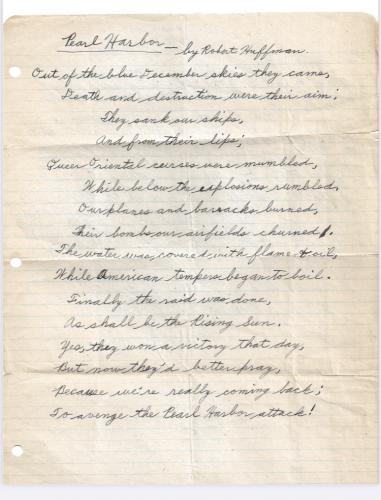 Pearl Harbor — by Robert Huffman.
Out of the blue December skies they came,
Death and destruction were their aim;
They sank our ships,
And from their lips;
Queer Oriental curses were mumbled,
While below the explosions rumbled,
Our planes and barracks burned,
Their bombs our airfields churned.
The water was covered with flame & oil,
While American tempers began to boil.
Finally the raid was done,
As shall be the Rising Sun.
Yes, they won a victory that day,
But now they'd better pray,
Because we're really coming back;
To avenge the Pearl Harbor attack!